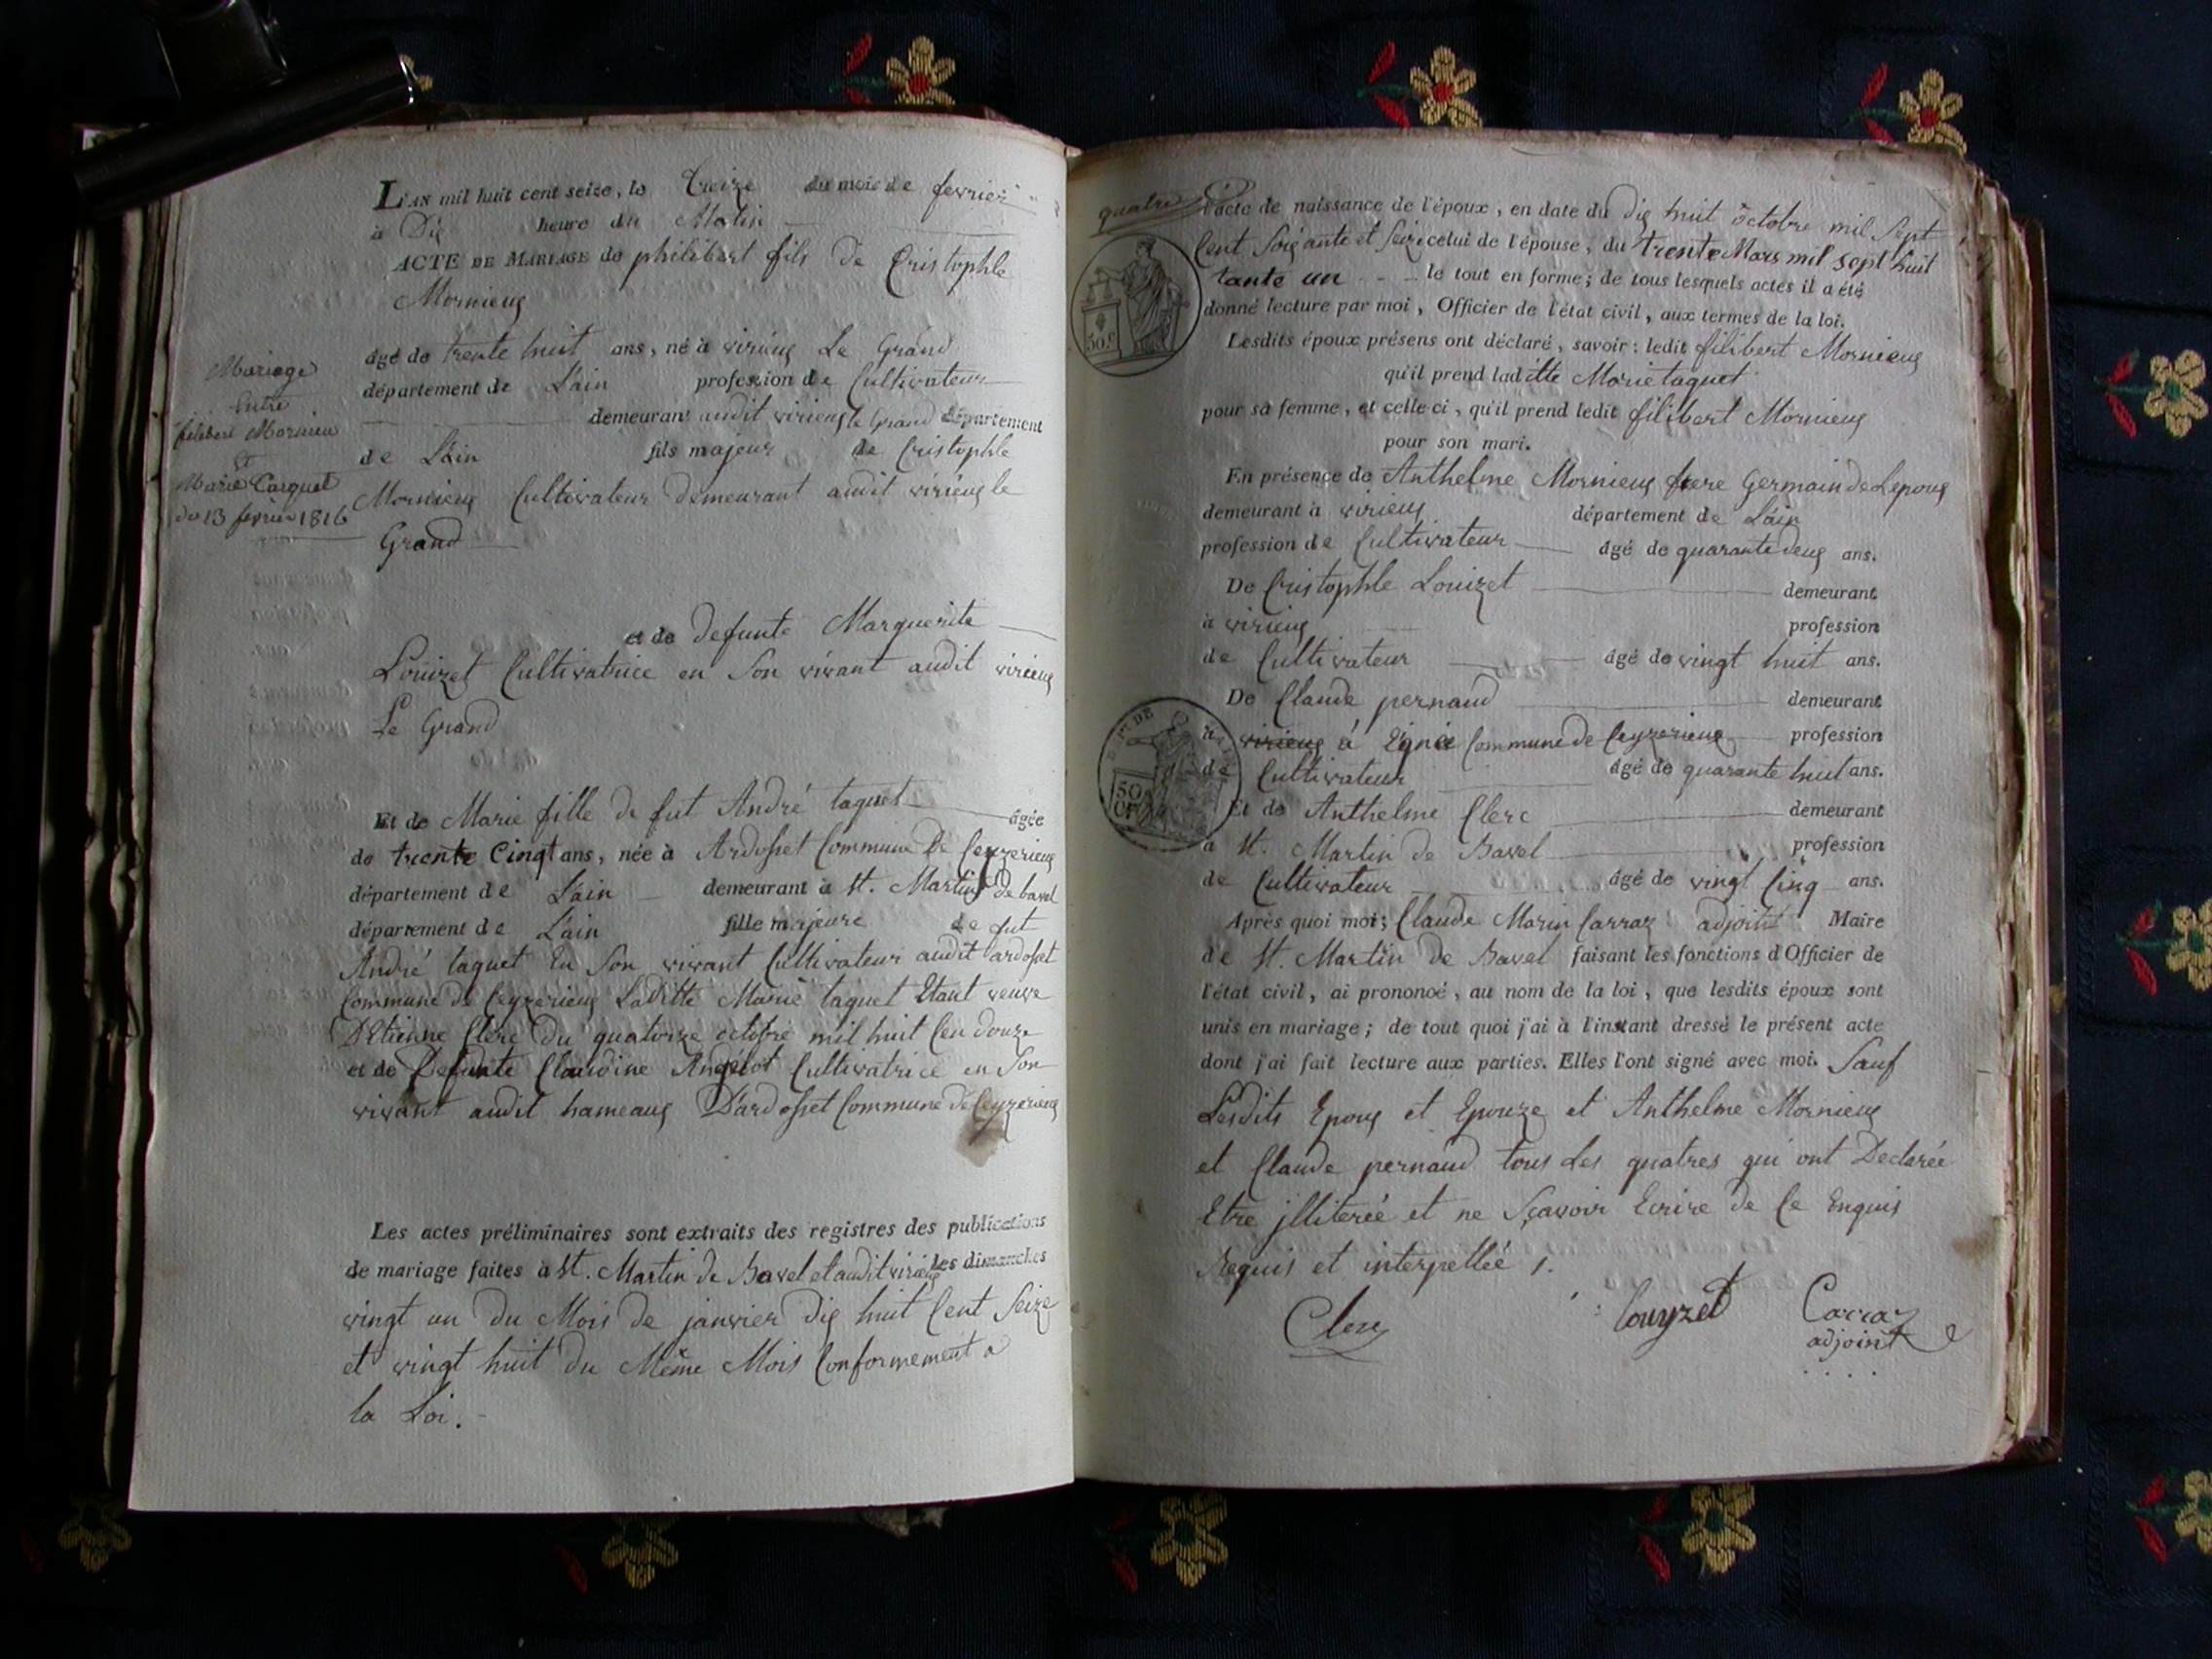 L'AN mil huit cent seize, le treize du mois de fevrier
à Dix heure du Matin
ACTE DE MARIAGE de philibert fils de Cristophle
Mornieux
âgé de trente huit ans, né à virieux Le Grand
département de L'ain profession de Cultivateur
demeurant audit virieux le Grand département
de L'ain fils majeur de Cristophle
Mornieux Cultivateur demeurant audit virieux le
Grand
et de defunte Marguerite
Louizet Cultivatrice en Son vivant audit virieux
Le Grand
Mariage
Entre
filibert Mornieu
et
Marie Taquet
du 13 fevrier 1816
Et de Marie fille de fut André taquet âgée
de trente Cinqt ans, née à Ardosset Commune De Ceyzerieux
département de L'ain demeurant à St. Martin de bavel
département de L'ain fille majeure de fut
André taquet En Son vivant Cultivateur audit ardosset
Commune de Ceyzerieux Laditte Marie taquet Etant veuve
D'Etienne Clerc du quatorze octobre mil huit Cen douze
et de Defunte Claudine Angelot Cultivatrice en Son
vivant audit hameaux D'ardosset Commune de Ceyzerieux
Les actes préliminaires sont extraits des registres des publications
de mariage faites à St. Martin de Bavel et audit virieux les dimanches
vingt un du Mois de janvier dix huit Cent Seize
et vingt huit du Même Mois Conformement a
la Loi.
quatre
l'acte de naissance de l'époux, en date du dix huit octobre mil Sept
Cent Soixante et Seize celui de l'épouse, du trente Mars mil sept huit
tante un le tout en forme; de tous lesquels actes il a été
donné lecture par moi, Officier de l'état civil, aux termes de la loi.
Lesdits époux présens ont déclaré, savoir: ledit filibert Mornieux
qu'il prend laditte Marie taquet
pour sa femme, et celle-ci, qu'il prend ledit filibert Mornieux
pour son mari.
En présence de Anthelme Mornieux frere Germain de Lepoux
demeurant à virieux département de L'ain
profession de Cultivateur âgé de quarante deux ans.
De Cristophle Louizet demeurant
à virieux profession
de Cultivateur âgé de vingt huit ans.
De Claude pernaud demeurant
à virieux à Commune de Ceyzerieux profession
de Cultivateur âgé de quarante huit ans.
Et de Anthelme Clerc demeurant
a St. Martin de Bavel profession
de Cultivateur âgé de vingt Cinq ans.
Après quoi moi; Claude Marin Carraz adjoint Maire
de St. Martin de Bavel faisant les fonctions d'Officier de
l'état civil, ai prononcé, au nom de la loi, que lesdits époux sont
unis en mariage; de tout quoi j'ai à l'instant dressé le présent acte
dont j'ai fait lecture aux parties. Elles l'ont signé avec moi. Sauf
Lesdits Epoux et Epouze et Anthelme Mornieux
et Claude pernaud tous Les quatres qui ont Declarée
Etre jlliterée et ne Sçavoir Ecrire de Ce Enquis
Requis et interpellée /.
Clerc Louyzet Carraz
adjoint
50.C
50